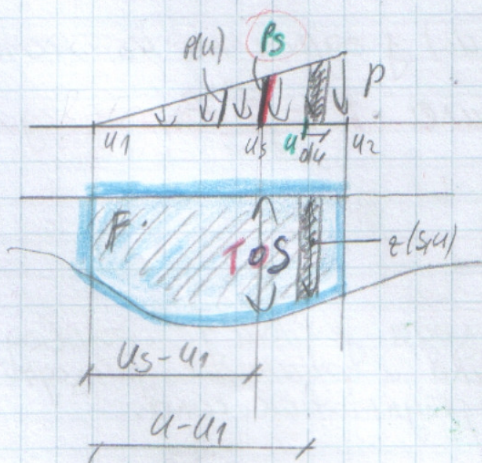 p(u) Ps P
u1 us u du u2
F. TOS z(s,u)
us-u1
u-u1